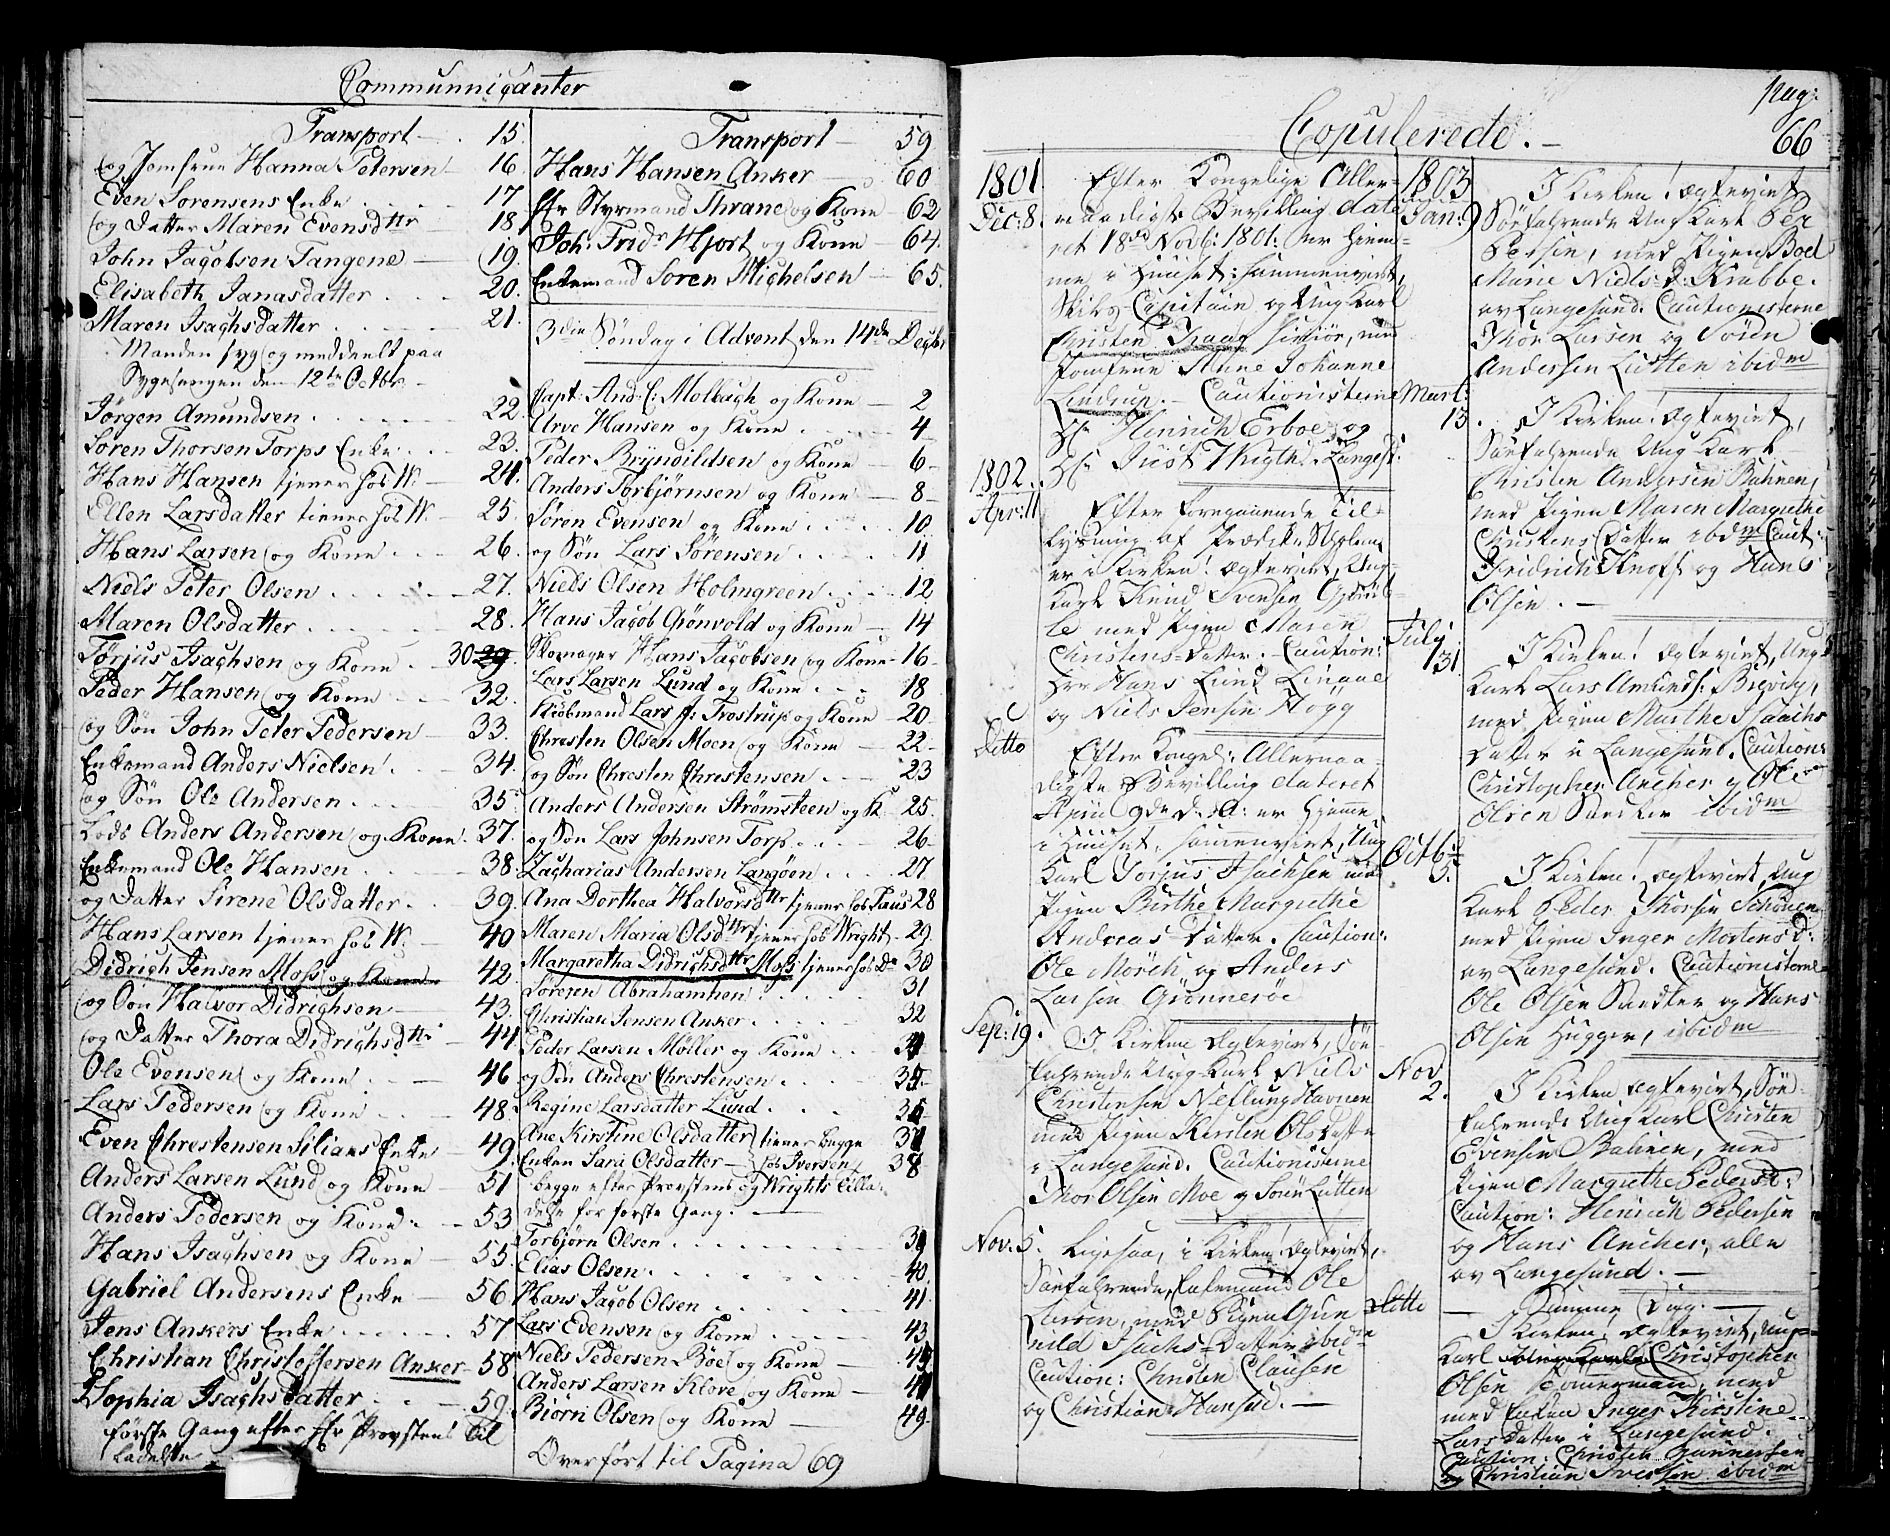 Communniçanter
Transport 15.
og Jomfrue Hanna Petersen 16
Even Sorensens Enke 17
og Datter Maren Evensdttr 18.
John Jacobsen Tangene 19.
Elisabeth Janasdatter 20.
Maren Isachsdatter 21.
Manden syg og meddeelt paa
Sygesengen den 12te Octbr.
Jörgen Amundsen 22.
Sören Thorsen Torps Enke 23.
Hans Hansen tjener hos W: 24.
Ellen Larsdatter tiener hos W. 25.
Hans Larsen og Kone 26.
Niels Peter Olsen 27.
Maren Olsdatter 28.
Törjus Isachsen og Kone 30 29.
Peder Hansen og Kone 32.
og Sön John Peter Pedersen 33.
Enkemand Anders Nielsen 34.
og Sön Ole Andersen 35
Lods Anders Andersen og Kone 37.
Enkemand Ole Hansen 38.
og Datter Sirene Olsdatter 39.
Hans Larsen tjener hos W: 40
Didrich Jensen Moss og Kone 42.
og Son Halvor Didrichsen 43.
og Datter Thora Didrichsdttr 44
Ole Evensen og Kone 46
Lars Pedersen og Kone 48.
Even Chrestensen Silians Enke 49.
Anders Larsen Lund og Kone 51
Anders Pedersen og Kone 53
Hans Isachsen og Kone 55.
Gabriel Andersens Enke 56
Jens Ankers Enke 57
Christian Christoffersen Anker 58
Sophia Isachsdatter 59.
förste Gang efter Hr Provstens Til
ladelse
Transport 59
Hans Hansen Anker 60
Hr Styrmand Thrane og Kone 62
Joh: Fridr Hjort og Kone 64.
Enkemand Soren Michelsen 65.
3die Söndag i Advent den 14de Decbr
Capt: And: C: Molbach og Kone 2
Arve Hansen og Kone 4
Peder Brynildsen og Kone 6
Anders Torbjörnsen og Kone 8
Sören Evensen og Kone 10
og Sön Lars Sörensen 11
Niels Olsen Holmgreen 12
Hans Jacob Grönvold og Kone 14
Skomager Hans Jacobsen og Kone 16
Lars Larsen Lund og Kone 18
Kiöbmand Lars J: Trostrup og Kone 20
Chresten Olsen Moen og Kone 22
og Sön Chresten Chrestensen 23
Anders Andersen Strömsteen og K 25.
og Sön Lars Johnsen Torp 26
Zacharias Andersen Langöen 27
Ana Dorthea Halvorsdttr tjener hos Paus 28
Maren Maria Olsdttr tjener hos Wright 29
Margaretha Didrichsdttr Moss tjener hos Do 30
Sörren Abrahamsen 31
Christian Jensen Anker 32
Peder Larsen Möller og Kone 34
og Sön Anders Chrestensen 35
Regine Larsdatter Lund 36
Ane Kirstine Olsdatter tiener begge 37
Enken Sara Olsdatter hos Iversen 38
begge efter Provstens og Wrights Tilla-
delse for förste Gang.
Torbjörn Olsen 39
Elias Olsen 40
Hans Jacob Olsen 41
Lars Evensen og Kone 43
Niels Pedersen Böe og Kone 45
Anders Larsen Klove og Kone 47
Biörn Olsen og Kone 49
Overfört til Pagina 69
Pag:
66
Copulerede.
1801.
Dec: 8.
Efter Kongelige Aller-
naadigst Bevilling date
ret 18de Novb: 1801. her hiem-
me i Huuset: sammenviet,
Skibs Capitain og Ung Karl
Christen Kaag Junior, med
Jomfrue Anne Johanne
Lindrup. Cautionisterne
Hr: Hinrich Erboe og
Hr: Just Wrigth, Langes:
1802.
Apr: 11
Efter foregaaende Til-
lysning af Prædike Stolen
er i Kirken! Ægteviet, Ung
Karl Knud Svensen Gjærul-
le med Pigen Maren
Christens-Datter. Caution:
Hrr Hans Lund Linaae
og Niels Jensen Högg
Ditto
Efter Kongel: Allernaa-
digste Bevilling dateret
April 9de d. A: er hiemme
i Huuset, sammenviet, Ung
Karl Torjus Isachsen med
Pigen Birthe Margrethe
Andreas-Datter. Caution:
Ole Mörch og Anders
Larsen Grönneröe
Sep: 19.
I Kirken Ægteviet, Söe
farende Ung Karl Niels
Christensen Neflung Havnen
med Pigen Kirsten Olsdatter
i Langesund. Cautionisterne
Thor Olsen Moe og Sören Lutten
Nov: 5.
Ligesaa, i Kirken! Ægteviet,
Söefahrende, Enkemand Ole
Larsen, med Pigen Gun
nild Isachs-Datter ibidm
Caution: Christen Clausen
og Christian Hansen.
1803
Jan: 9
I Kirken! Ægteviet
Söefahrende Ung Karl Per
Persen, med Pigen Boel
Marie Niels-D: Krabbe.
av Langesund. Cautionisterne
Thor Larsen og Sören
Andersen Lutten ibidm
Mart:
13.
I Kirken! Ægteviet,
Söefahrende Ung Karl
Christen Andersen Bahnen,
med Pigen Maren Margrethe
Christens Datter ibidm Caut:
Fridrich Knoph og Hans
Olsen.
July
31.
I Kirken! Ægteviet, Ung
Karl Lars Amunds: Brevig,
med Pigen Marthe Isaachs
Datter i Langesund. Caution:
Christopher Ancher og Ole
Olsen Sandker ibidm
Octb:
5.
I Kirken! Ægteviet, Ung
Karl Peder Thorsen Schönen
med Pigen Inger Mortensd:
av Langesund. Cautionisterne
Ole Olsen Sandker og Hans
Olsen Hugger, ibidm
Nov
2.
I Kirken Ægteviet, Söe-
fahrende Ung Karl Christen
Evensen Bahnen, med
Pigen Margrethe Pedersd:
Caution: Hinrich Pedersen
og Hans Ancher, alle
av Langesund.
Ditto
Samme Dag.
I Kirken! Ægteviet, Ung-
Karl Christopher
Olsen Tömermand, med
med Enken Inger Kirstine
Lars Datter i Langesund.
Caution: Christen Gunnersen
og Christian Iversen ibidm